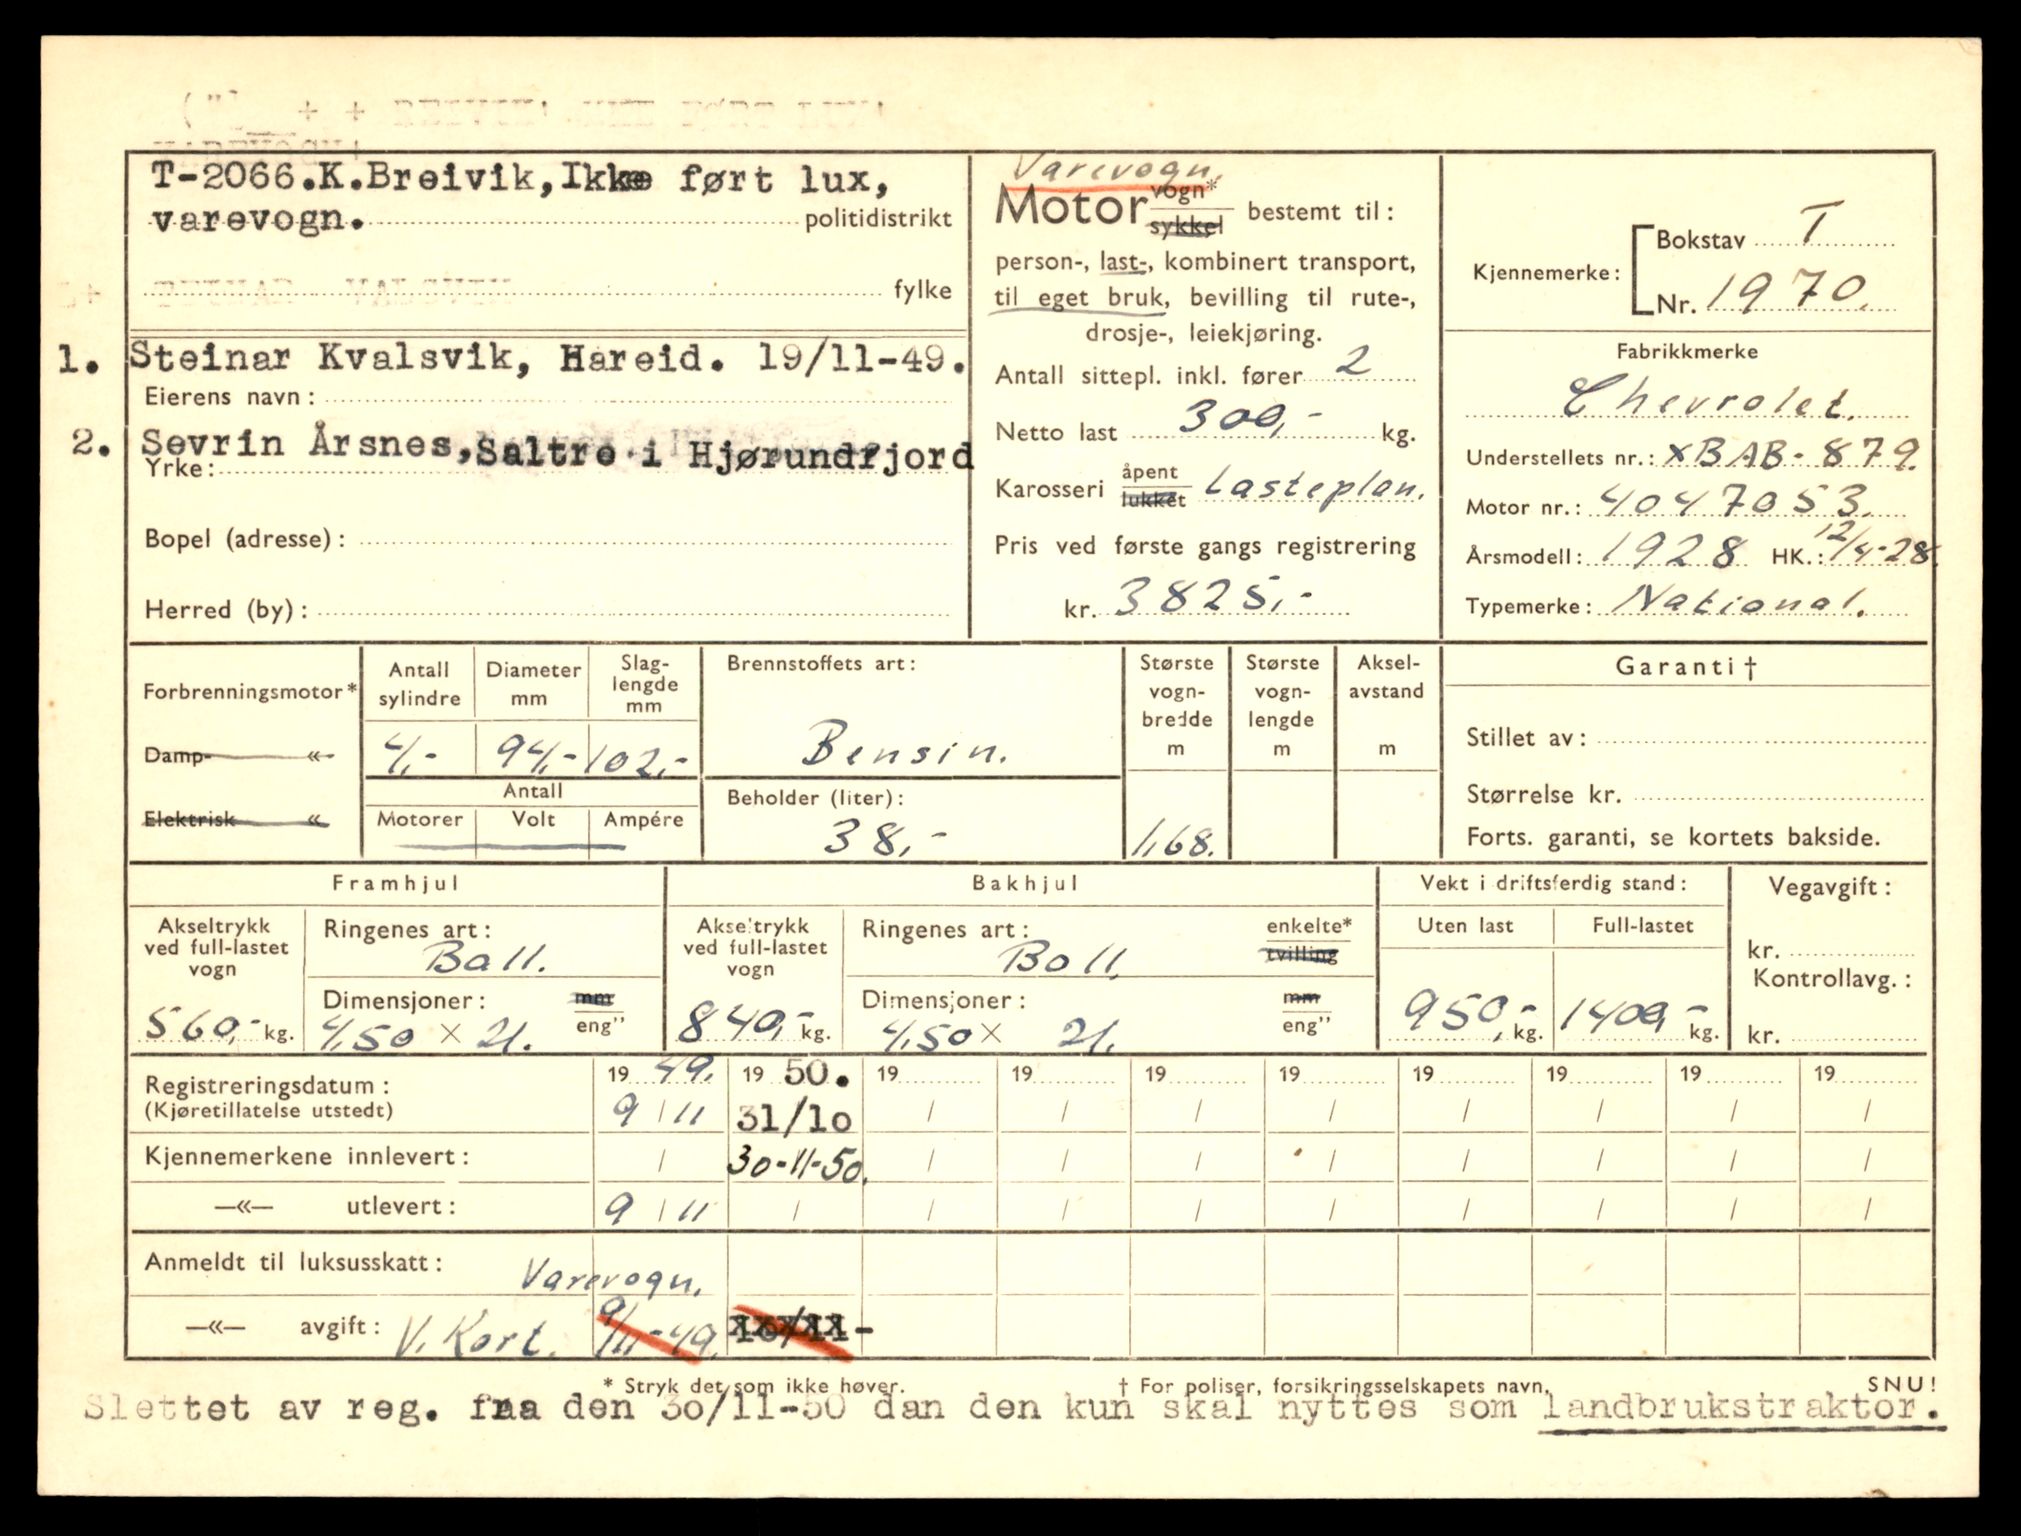 T-2066.K.Breivik,Ikke ført lux,
varevogn. politidistrikt
fylke
1. Steinar Kvalsvik, Hareid. 19/11-49.
Eierens navn:
2. Sevrin Årsnes,Saltre i Hjørundfjord
Yrke:
Bopel (adresse):
Herred (by):
Varevogn.
Motor vogn* sykkel bestemt til:
person-, last-, kombinert transport,
til eget bruk, bevilling til rute-,
drosje-, leiekjøring.
Antall sittepl. inkl. fører 2
Netto last 300,- kg.
Karosseri åpent lukket Lasteplan.
Pris ved første gangs registrering
kr. 3825,-
Kjennemerke: Bokstav T
Nr. 1970.
Fabrikkmerke
Chevrolet.
Understellets nr.: xBAB-879.
Motor nr.: 4047053.
Årsmodell: 1928 HK.: 12/4-28.
Typemerke: National.
Forbrenningsmotor*
Damp- «-
Elektrisk «
Antall sylindre
Diameter mm
Slag-lengde mm
4,- 94,- 102,-
Antall
Motorer Volt Ampére
Brennstoffets art:
Bensin.
Beholder (liter):
38,-
Største vogn-bredde m
1,68.
Største vogn-lengde m
Aksel-avstand m
Garanti†
Stillet av:
Størrelse kr.
Forts. garanti, se kortets bakside.
Framhjul
Akseltrykk ved full-lastet vogn
560,- kg.
Ringenes art:
Ball.
Dimensjoner: mm eng"
4,50 × 21.
Bakhjul
Akseltrykk ved full-lastet vogn
840,- kg.
Ringenes art: enkelte* tvilling
Boll.
Dimensjoner: mm eng"
4,50 × 21.
Vekt i driftsferdig stand:
Uten last Full-lastet
950,- kg. 1400,- kg.
Vegavgift:
kr.
Kontrollavg.:
kr.
Registreringsdatum: 19 49. 19 50. 19 19 19 19 19 19 19 19
(Kjøretillatelse utstedt) 9/11 31/10 / / / / / / / /
Kjennemerkene innlevert: / 30-11-50. / / / / / / / /
—«— utlevert: 9/11 / / / / / / / / /
Anmeldt til luksusskatt: Varevogn.
—«— avgift: V. Kort. 9/11-49.
* Stryk det som ikke høver. † For poliser, forsikringsselskapets navn. SNU!
Slettet av reg. fra den 30/11-50 dan den kun skal nyttes som landbrukstraktor.